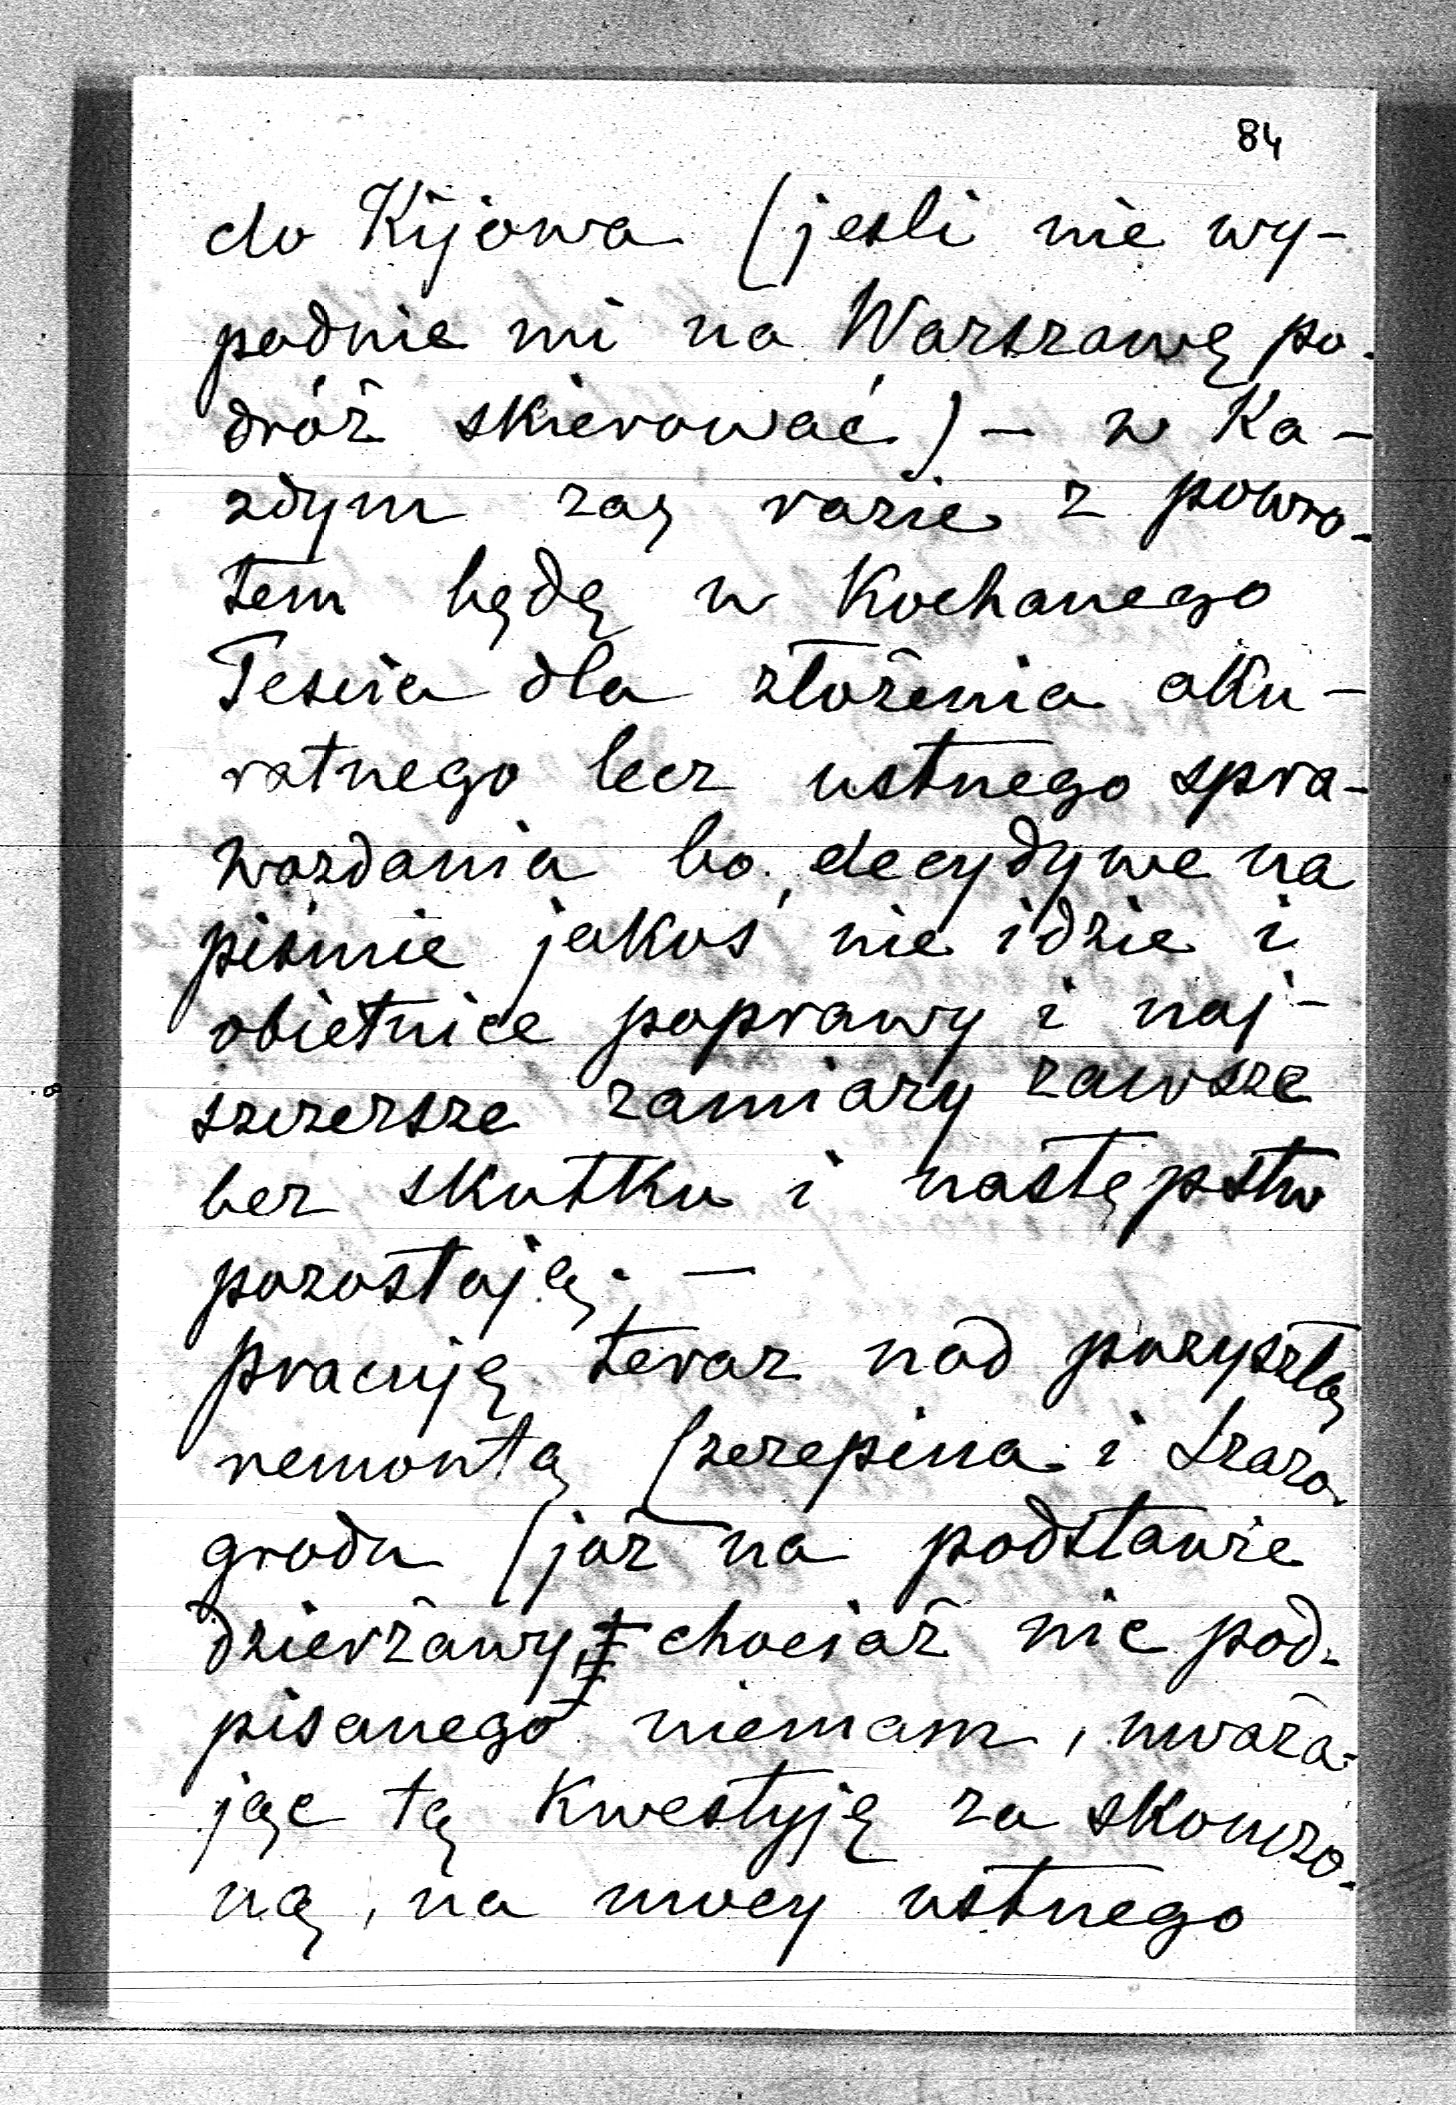 84
do Kijowa (jesli nie wy-
padnie mi na Warszawę po-
dróż skierować) - w Ka-
zdym zaś razie z powro-
tem będę u Kochanego
Tescia dla złożenia aku-
ratnego lecz ustnego spra-
wozdania bo decydywe na
piśmie jakoś nie idzie i
obietnice poprawy i naj-
szczersze zamiary zawsze
bez skutku i następstw
pozostają. —
pracuję teraz nad przyszłą
remontą Czerepina i Szaro-
grodu (już na podstawie
dzierżawy, chociaż nic pod-
pisanego niemam, uważa-
jąc tę Kwestyję za skończo-
ną, na mocy ustnego